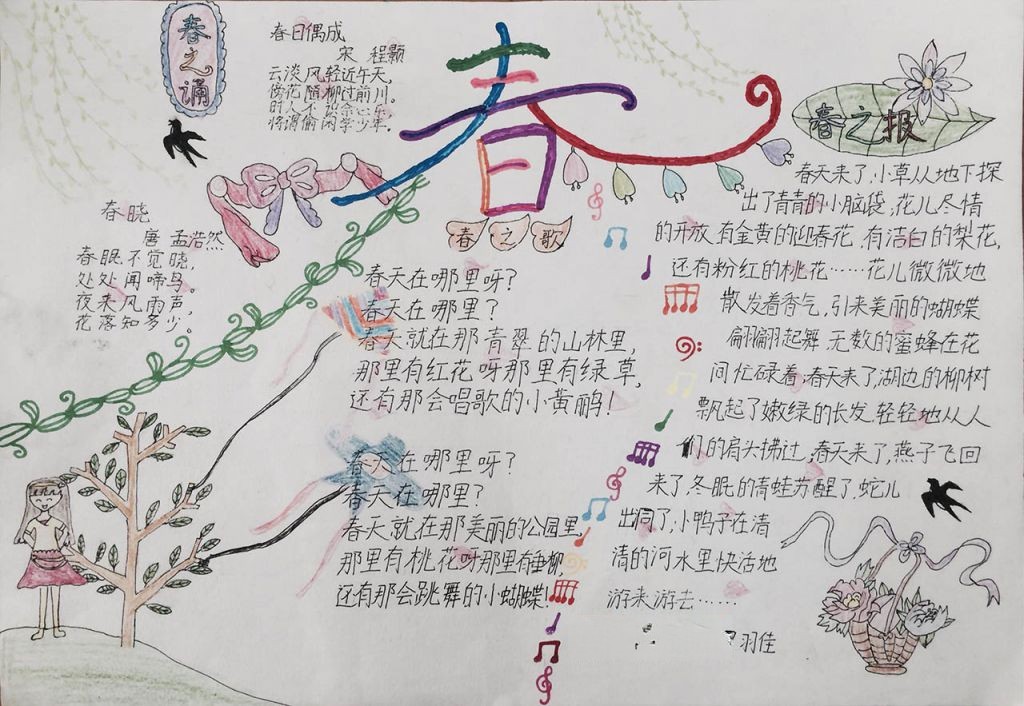 春之诵
春日偶成
宋 程颢
云淡风轻近午天,
傍花随柳过前川。
时人不识余心乐
将谓偷闲学少年。
春晓
唐 孟浩然
春眠不觉晓,
处处闻啼鸟。
夜来风雨声,
花落知多少。
春
春之歌
春天在哪里呀?
春天在哪里?
春天就在那青翠的山林里,
那里有红花呀那里有绿草,
还有那会唱歌的小黄鹂!
春天在哪里呀?
春天在哪里?
春天就在那美丽的公园里,
那里有桃花呀那里有垂柳,
还有那会跳舞的小蝴蝶!
春之报
春天来了,小草从地下探
出了青青的小脑袋,花儿尽情
的开放,有金黄的迎春花,有洁白的梨花,
还有粉红的桃花……花儿微微地
散发着香气,引来美丽的蝴蝶
翩翩起舞,无数的蜜蜂在花
间忙碌着,春天来了,湖边的柳树
飘起了嫩绿的长发,轻轻地从人
们的肩头拂过,春天来了,燕子飞回
来了,冬眠的青蛙苏醒了,蛇儿
出洞了,小鸭子在清
清的河水里快活地
游来游去……
羽佳